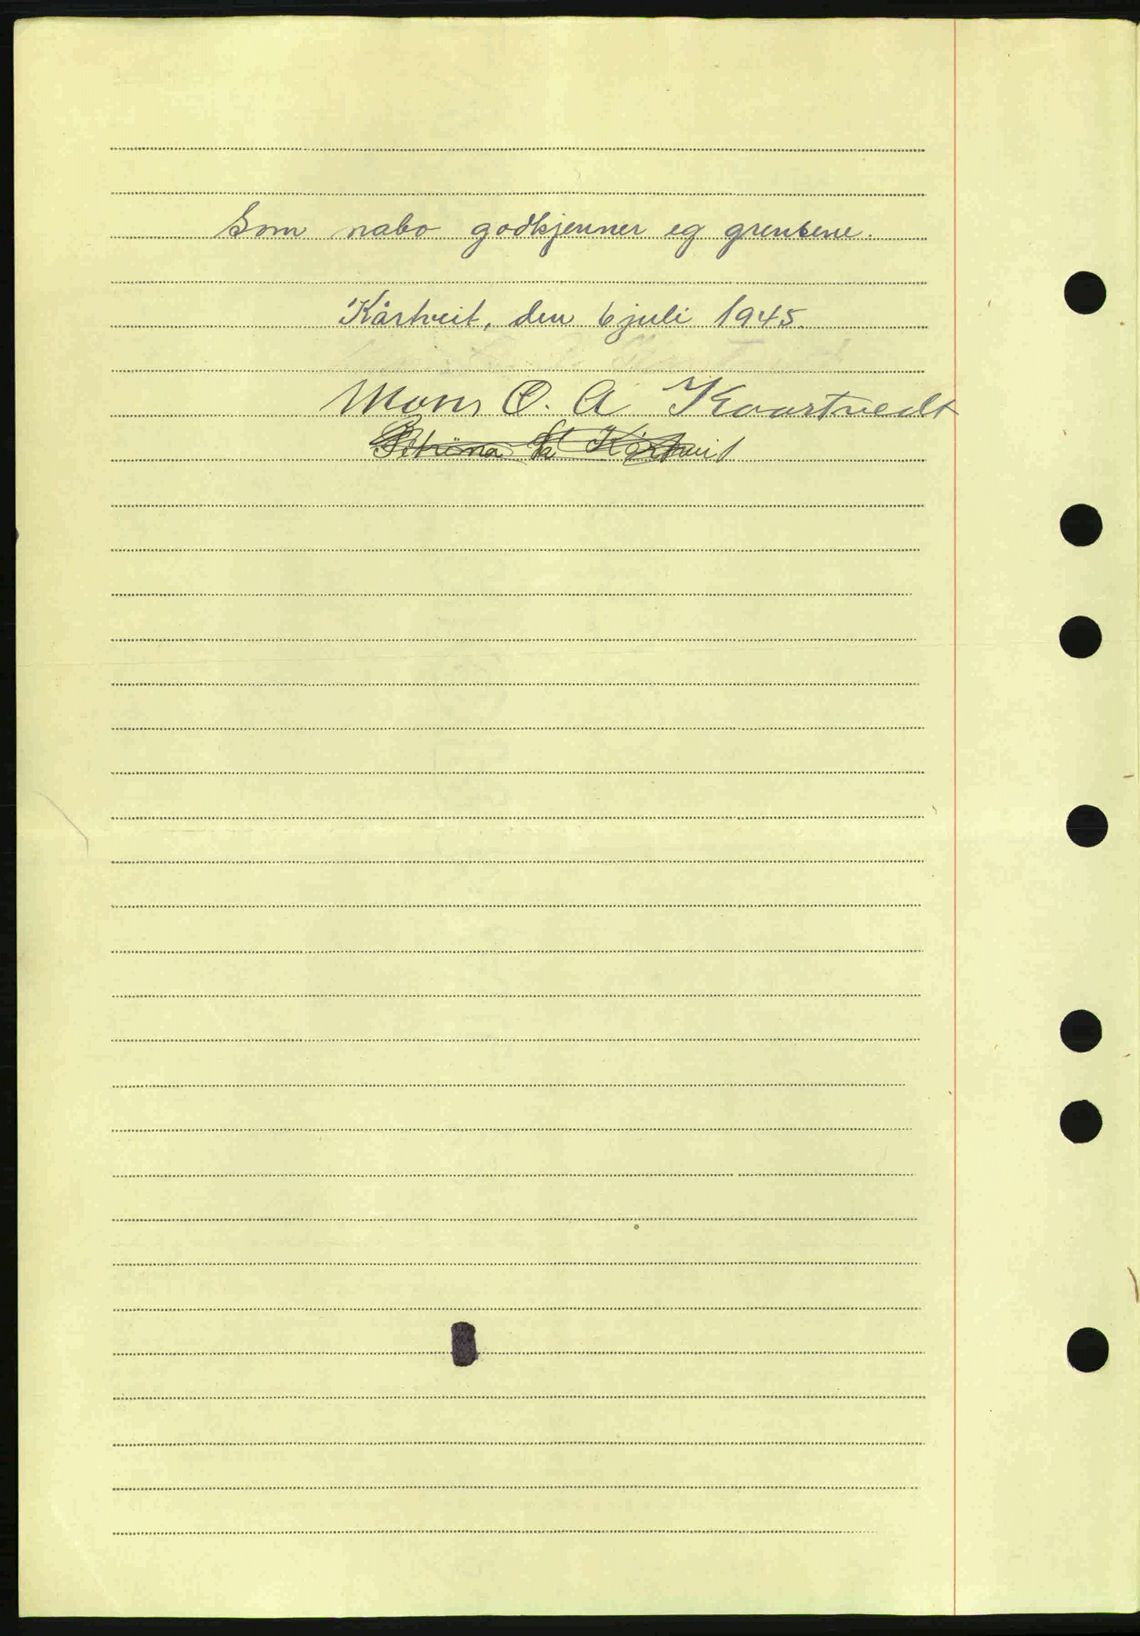 Som nabo godkjenner eg grensene.
Kårtveit, den 6 juli 1945.
Mons O. A Kaartvedt
Kårtveit